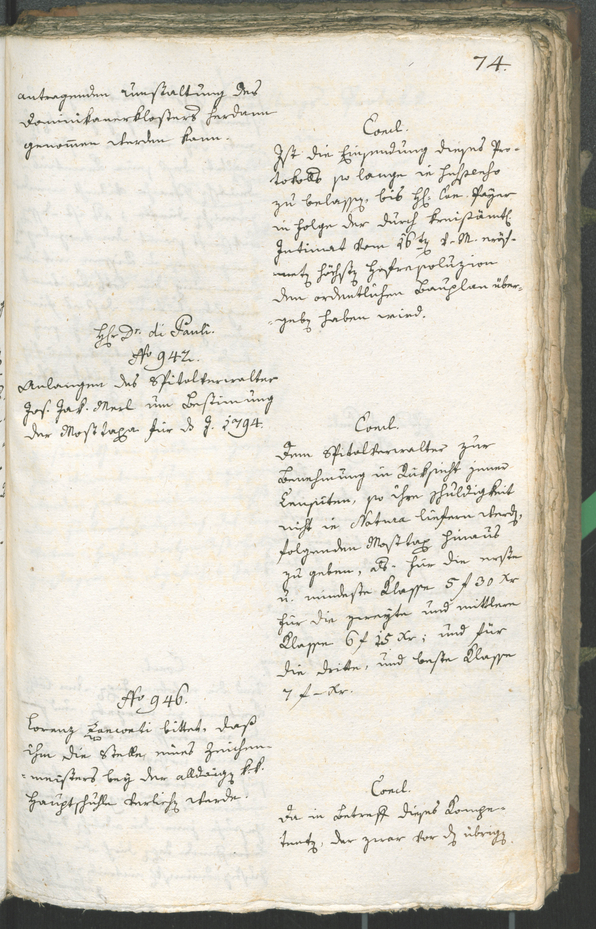 74.
antragenden Umstaltung des
Dominikanerklosters herdann
genommen werden kann.
Concl.
Ist die Einsendung dieses Pro-
tokolls so lange in suspenso
zu belassen, bis H. Payer
in Folge der durch kreisämtl.
Intimat vom 16ten d. M. eröf-
neten höchsten Hofresoluzion
den ordentlichen Bauplan über-
geben haben wird.
Hr. Dr. di Pauli.
No 942.
Anlangen des Spitalverwalter
Jos. Jak. Merl um Bestimung
der Mosttaxa für d. J. 1794.
Concl.
Dem Spitalverwalter zur
Benehmung in Rüksicht jener
Censiten, so ihre Schuldigkeit
nicht in Natura liefern werden,
folgenden Mosttax hinaus
zu geben, als: für die erste
u. mindeste Klasse 5 f 30 Xr
für die zweyte und mittlere
Klasse 6 f 15 Xr; und für
die dritte, und beste Klasse
7 f – Xr.
No 946.
Lorenz bittet, daß
ihm die Stelle eines Zeichen-
meisters bey der alldaigen k.k.
Hauptschulle verliehen werde.
Concl.
Da in Betreff dieses Kompe-
tenten, der zwar vor den übrigen